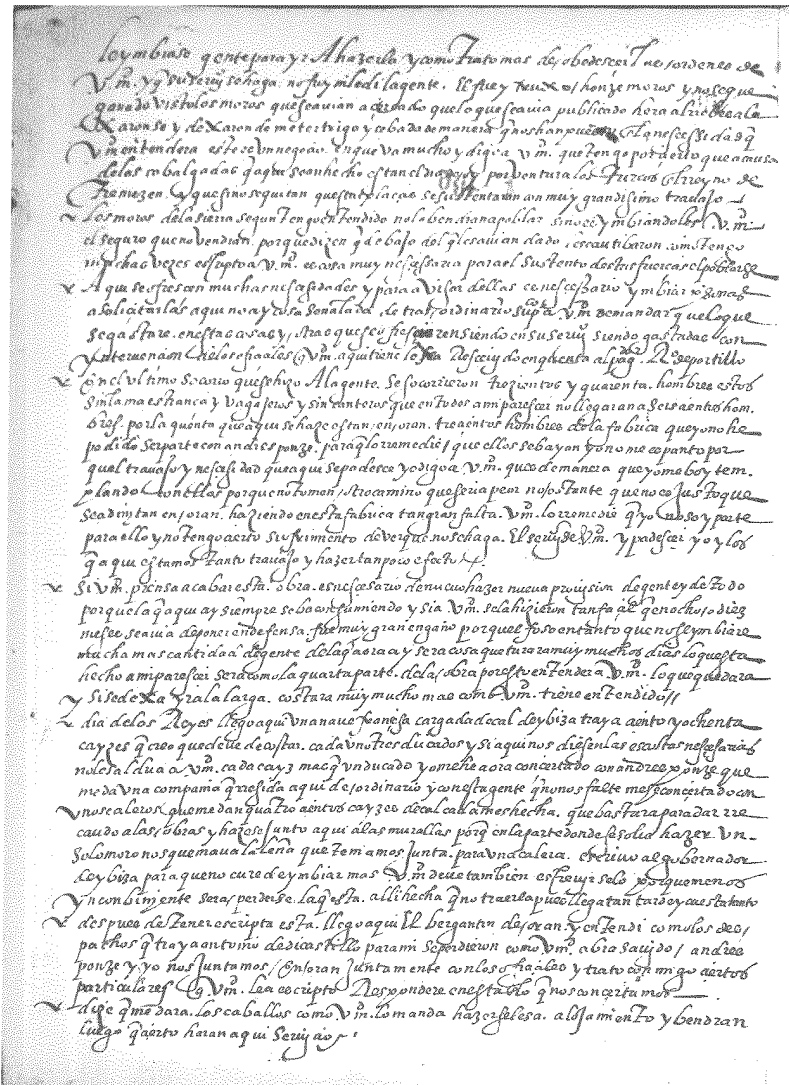 le ymbiase gente para yr A hazerlo y como Trato mas de obedescer las ordenes de
V.m. y q̃ su seruy.º se haga. no fuy ni le di la gente. El fue y truxo honze moros y no se que
ganado vistolos moros que se auian acercado que lo que se auia publicado hera al rebes a la
xaron se y dexaron de meter trigo y cebada de manera q̃ nos han puesto En la nescessidad q̃
V.m. entendera este es vn negocio. en que va mucho y digo a V.m. que tengo por cierto que a causa
de las cabalgadas q̃ aqui se an hecho estan el dia de oy y por ventura los Turcos En el reyno de
Tremezen. y que si no se quitan que estas plaças se sustentaran con muy grandisimo trabajo
los moros de la sierra segun tengo entendido no la bendian a poblar si no es ymbiandoles V.m.
el seguro que no vendran. porque dizen q̃ debajo del q̃ les auian dado los cautibaron. como tengo
muchas vezes escripto a V.m. es cosa muy nescessaria para el sustento destas fuerças el poblarse
Aqui se ofrescen muchas nescesidades y para auisar dellas es nescessario ymbiar
a solicitarlas aqui no ay cosa señalada de trasordinario sup.co a V.m. de mandar que lo que
se gastare. en estas cosas y otras que se ofrescieren siendo en su seruy.º siendo gastadas con
yntervencion de los ofiçiales q̃ V.m. aqui tiene le sea Resceuido en quenta al pag.or R.º de portillo
En el vltimo socorro que se hizo A la gente. se socorrieron trezientos y quarenta. hombres estos
sin la maestrança y vagajeros y sin canteros que entodos a mi parescer no llegaran a seiscientos hom
bres. por la quenta que aqui se haze estan, en oran. trecientos hombres de la fabrica que yo no he
podido ser parte con andres ponze. para q̃ lo rremedie / que ellos se bayan yo no me espanto por
quel trauajo y nescesidad que aqui se padesce yo digo a V.m. ques de manera que yo me boy tem
plando con ellos porque no tomen / otro camino que seria peor no ostante que no es Justo que
se admytan en / oran. haziendo en esta fabrica tan gran falta. V.m. lo rremedie q̃ yo no soy parte
para ello y no tengo cierto sufrimiento de ver que no se haga. El seruy.º de V.m. y padescer yo y los
q̃ aqui estamos tanto trauajo y hazer tan poco efecto
Si V.m. piensa acabar esta. obra. es nescesario de nueuo hazer nueua prouision de gente y de todo
porque la q̃ aqui ay siempre se ba consumiendo y si a V.m. se la hizieron tan facil q̃ en ocho, o diez
meses se auia de poner en defensa. fue muy gran engaño porquel foso en tanto que no se ymbiare
mucha mas cantidad de gente de la q̃ aora ay sera cosa que turara muy muchos dias lo questa
hecho a mi parescer sera como la quarta parte. de la / obra por esto entendera V.m. lo que quedara
y si se dexa yr a la larga. costara muy mucho mas como V.m. tiene entendido //
dia de los Reyes llego aqui vna naue françesa cargada de cal de ybiza traya ciento y ochenta
cayzes que creo que deue de costar. cada vno tres ducados y si aqui nos diesen las escoltas nescesarias
no le saldria a V.m. cada cayz mas q̃ vn ducado yo me he aora concertado con andres ponze que
me da vna compañia q̃ rresida aqui de / ordinario y con esta gente q̃ no nos falte me se concertado con
vnos caleros que me dan quatrocientos cayzes de cal cada mes hecha. que bastara para dar rre
caudo a las / obras y hazese Junto aqui a las murallas porq̃ en la parte donde se solia hazer vn.
solo moro nos quemaua la leña que teniamos Junta. para vna calera. escriuo al gobernador
de ybiza para que no cure de ymbiar mas V.m. deue tambien escreuirselo porque menos
ynconbiniente sera / perderse. la q̃ esta. alli hecha q̃ no traerla pues llega tan tarde y cuesta tanto
despues de tener escripta esta. llego aqui El bergantin de / oran y entendi como los des /
pachos q̃ traya antonio de dicastillo para mi se perdieron como V.m. abra sauido / andres
ponze y yo nos Juntamos / En / oran Juntamente con los ofiçiales y trato con migo ciertos
particulares q̃ V.m. le a escripto Respondere en esta lo q̃ nos concertamos
dize q̃ me dara. los caballos como V.m. lo manda hazerseles a. alojamiento y bendran
luego q̃ cierto haran aqui seruiçio.